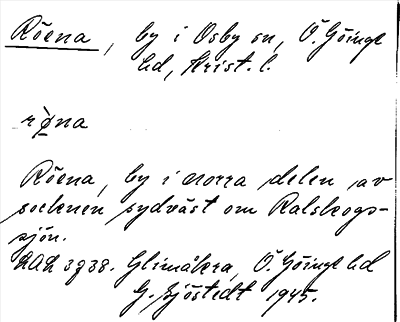 Röena, by i Osby sn, Ö. Göinge
hd, Krist. l.
rø̀na
Röena, by i norra delen av
socknen sydväst om Ralskogs-
sjön.
LAL 3738. Glimåkra, Ö. Göinge hd
G. Sjöstedt 1945.